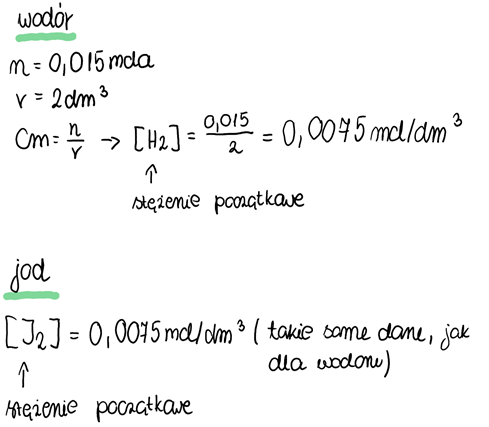 wodór
n = 0,015 mola
v = 2dm³
Cm = n/v → [H2] = 0,015/2 = 0,0075 mol/dm³
↑
stężenie początkowe
jod
[J2] = 0,0075 mol/dm³ (takie same dane, jak
dla wodoru)
↑
stężenie początkowe